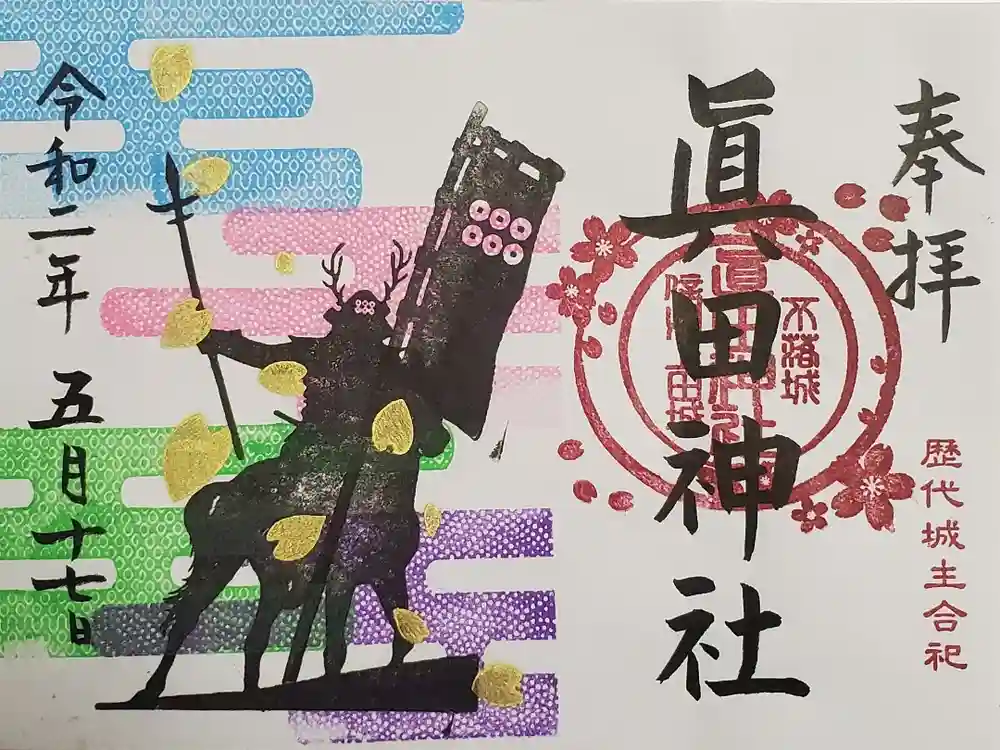 奉拝
歴代城主合祀
不落城
眞田神社
令和二年 五月十七日